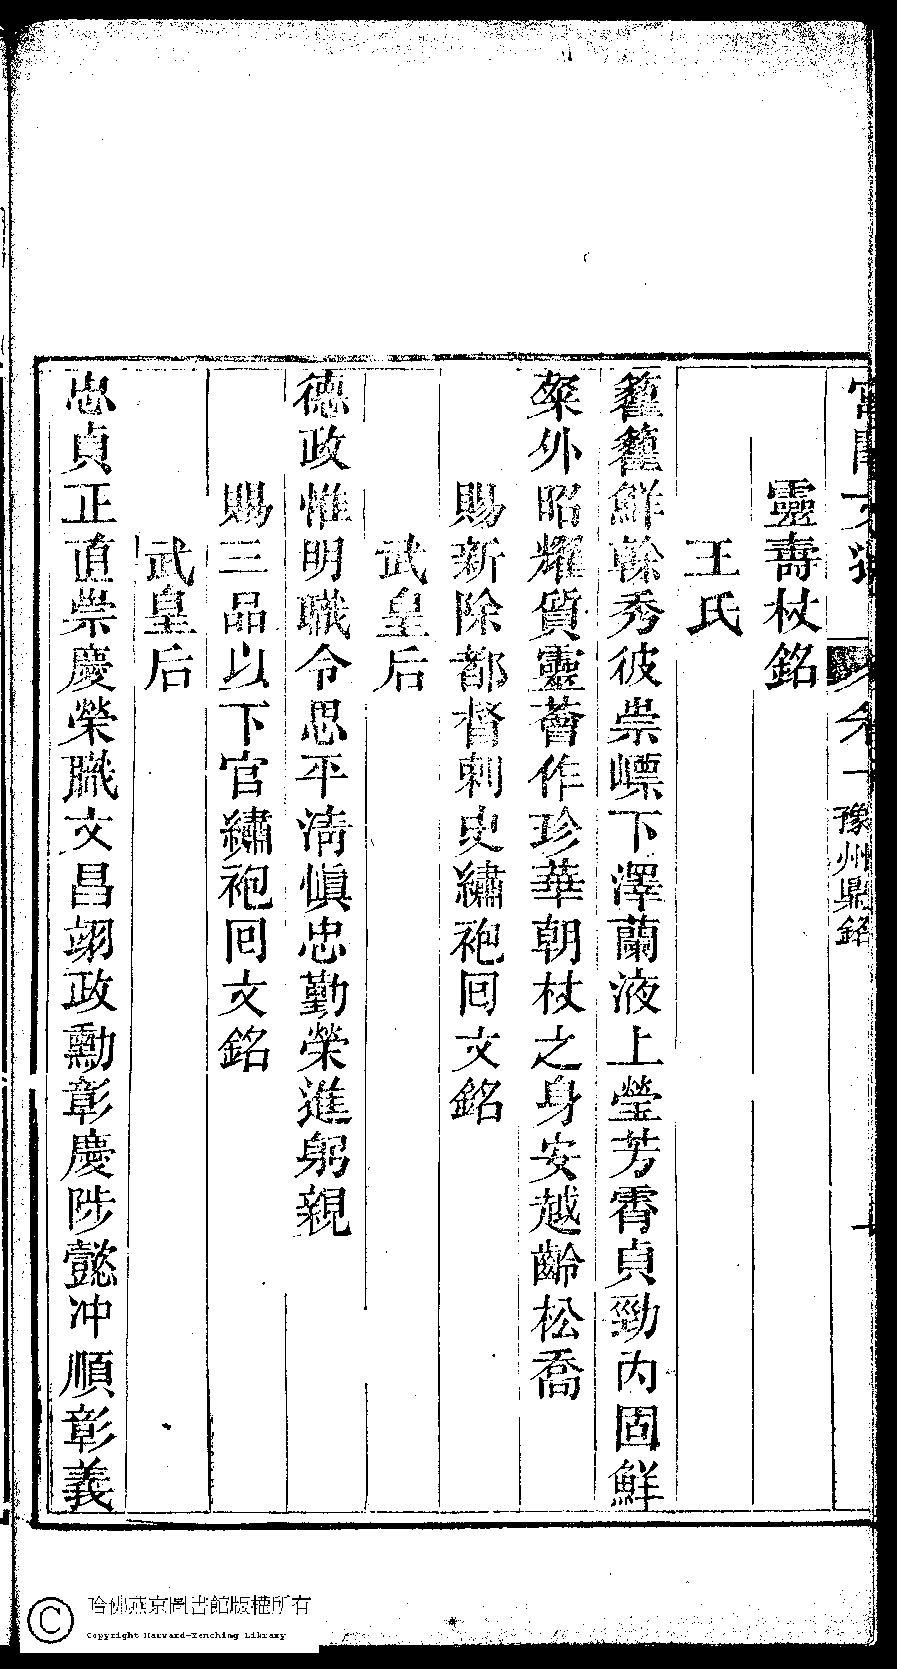 靈壽杖銘
王氏
蘿蘿鮮榦秀彼崇㟽下澤蘭液上瑩芳霄貞勁内固鮮
粲外昭耀質靈薈作珍華朝杖之身安越齡松喬
賜新除都督刺史繡袍回文銘
武皇后
德政惟明職令思平淸愼忠勤榮進躬親
賜三品以下官繡袍回文銘
武皇后
忠貞正直崇慶榮職文昌翊政勳彰慶陟懿冲順彰義
豫州鼎銘
哈佛燕京圖書館版權所有
Copyright Harvard-Yenching Library